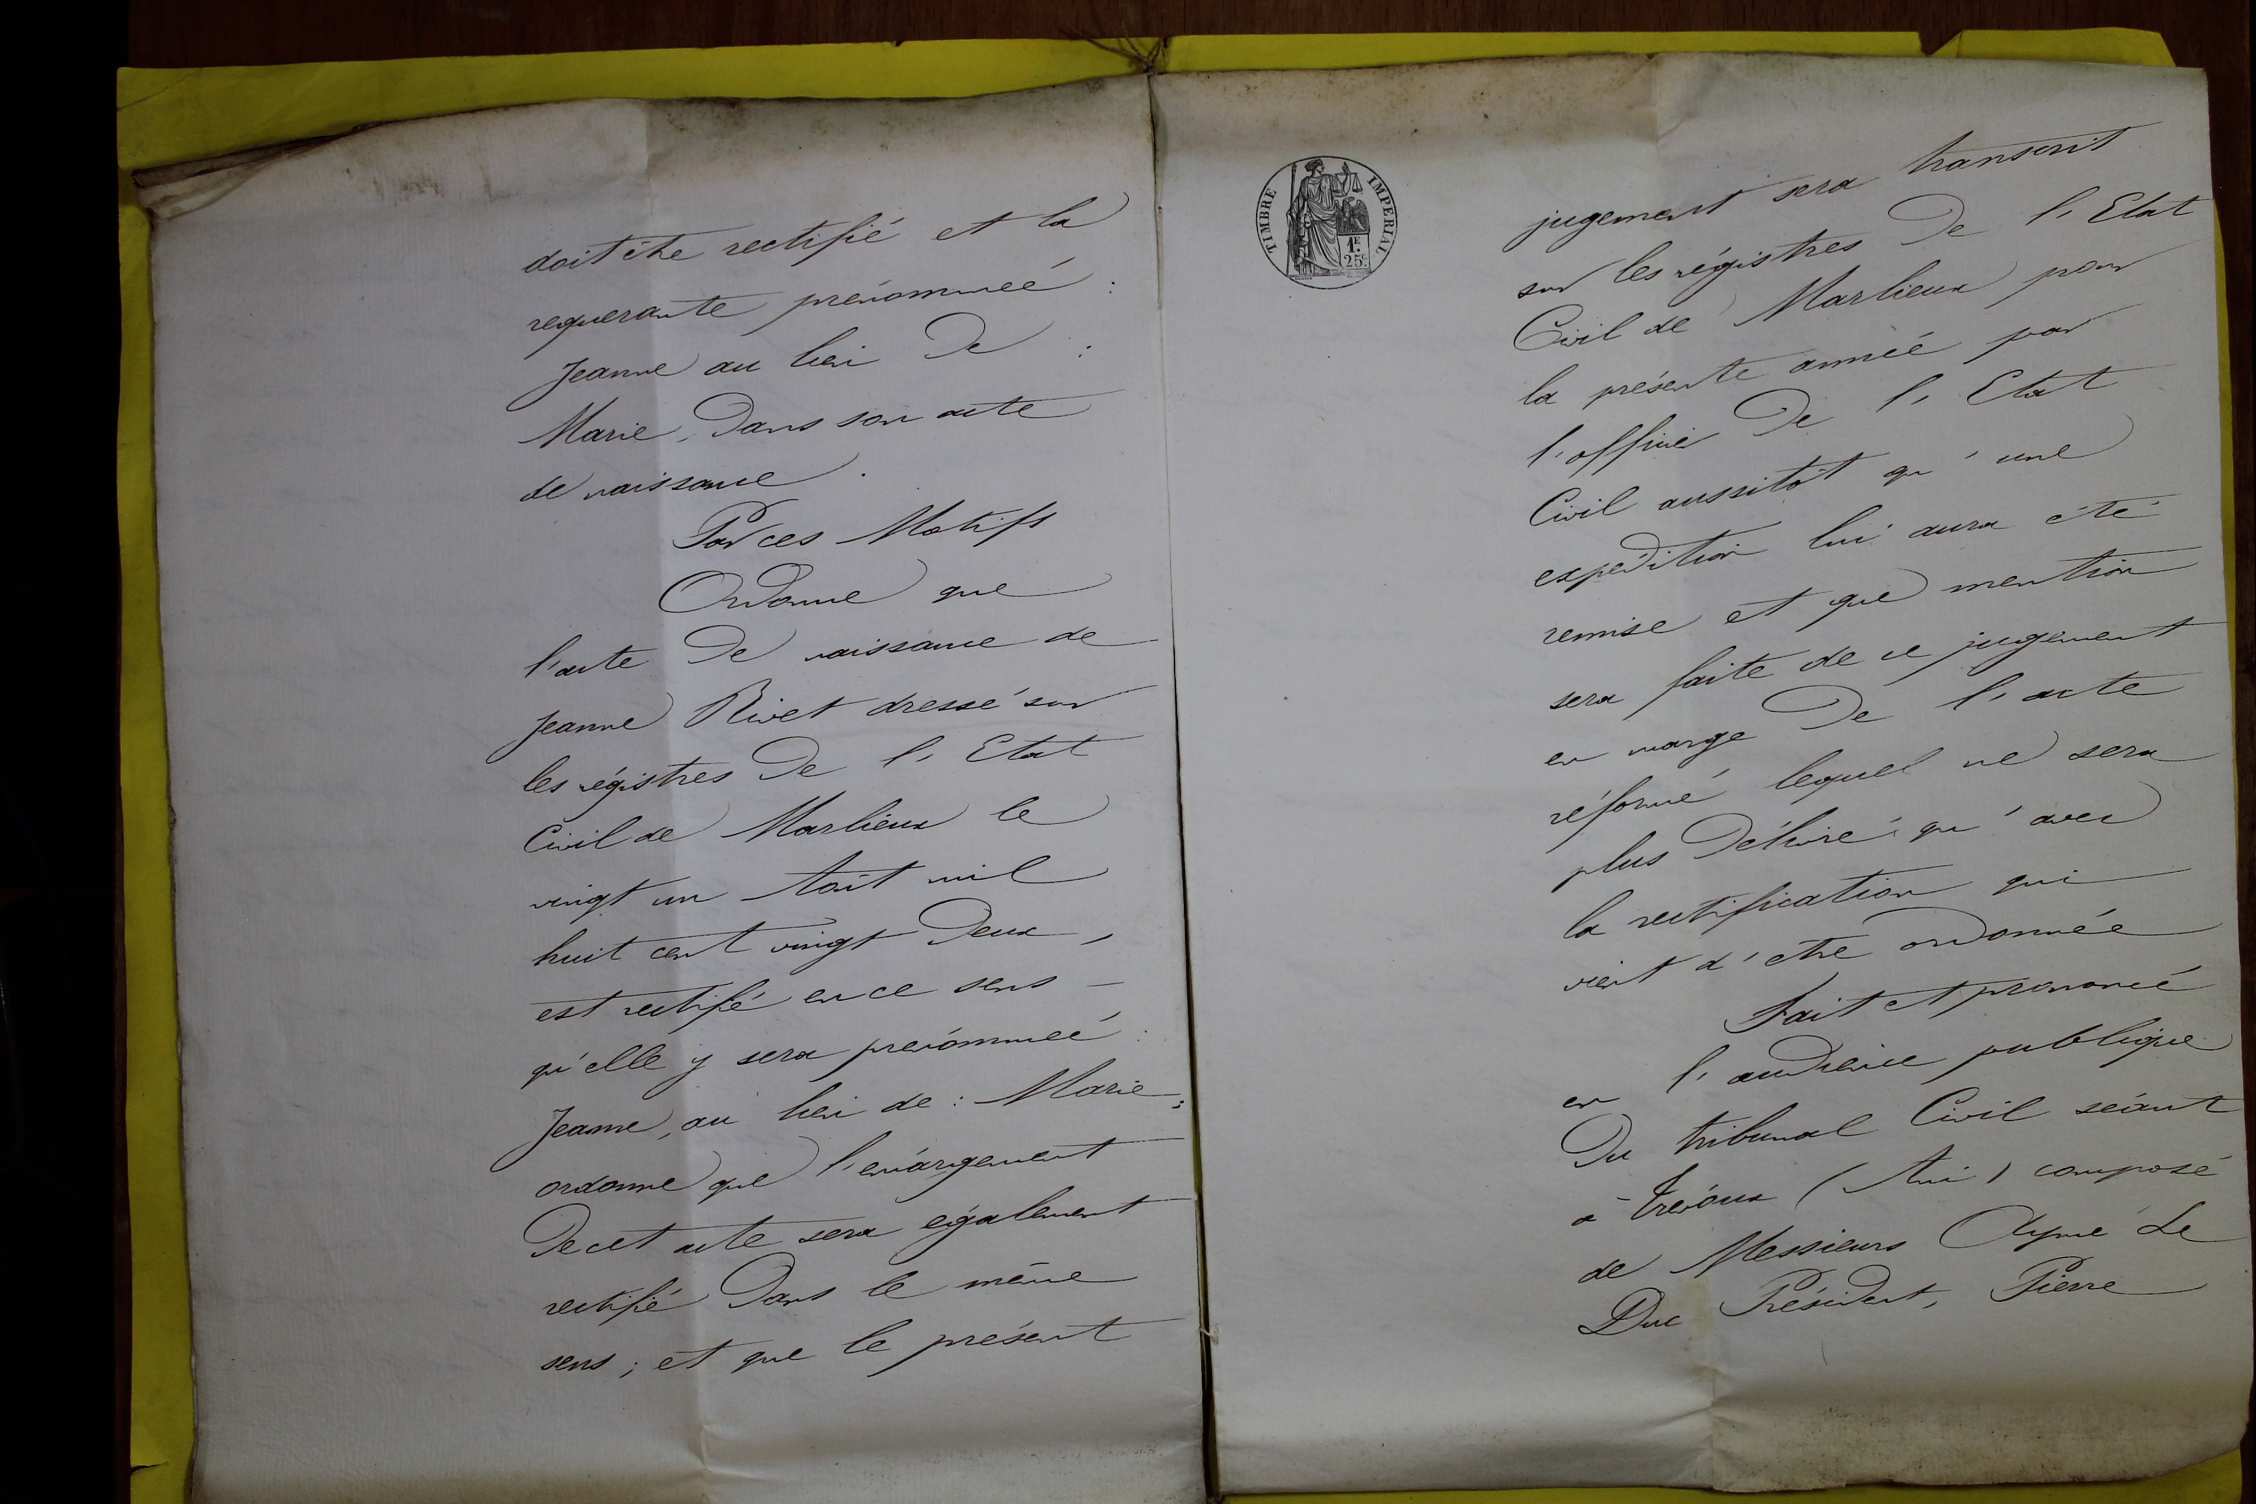 doit être rectifié et la
requerante prénommeé :
Jeanne au lieu de :
Marie, dans son acte
de naissance.
Par ces Motifs
Ordonne que
l'acte de naissance de
Jeanne Rivet dressé sur
les régistres de l'Etat
Civil de Marlieux le
vingt un Août mil
huit cent vingt deux,
est rectifié en ce sens –
qu'elle y sera prénommeé :
Jeanne, au lieu de : Marie ;
ordonne que l'emargement
de cet acte sera également
rectifié dans le même
sens ; et que le présent
TIMBRE IMPERIAL
1F.
25C.
jugement sera transcrit
sur les régistres de l'Etat
Civil de Marlieux pour
la présente année par
l'officier de l'Etat
Civil aussitôt qu'une
expédition lui aura été
remise et que mention
sera faite de ce jugement
en marge de l'acte
réformé lequel ne sera
plus délivré qu'avec
la rectification qui
vient d'etre ordonnée
Fait et prononcé
en l'audience publique
du tribunal Civil séant
à Trévoux (Ain) composé
de Messieurs Aymé Le
Duc Président, Pierre